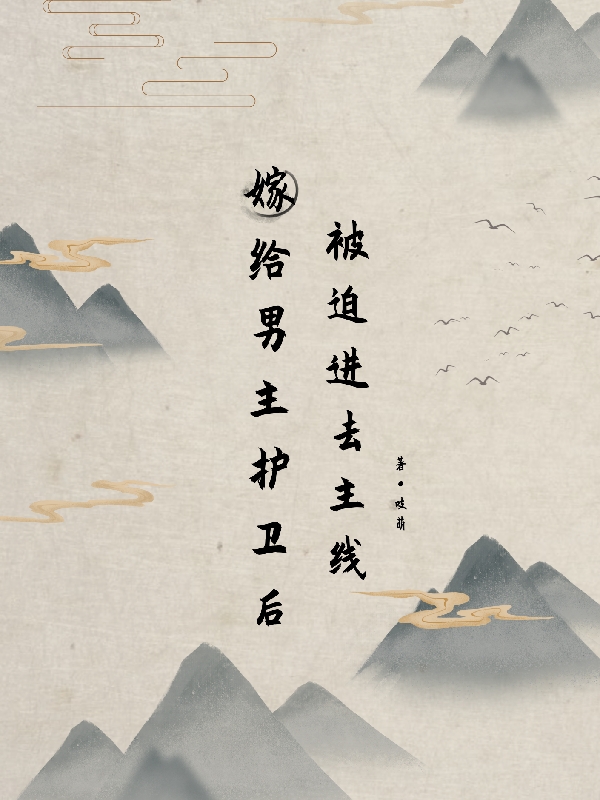 嫁给男主护卫后
被迫进去主线
著•吱萌